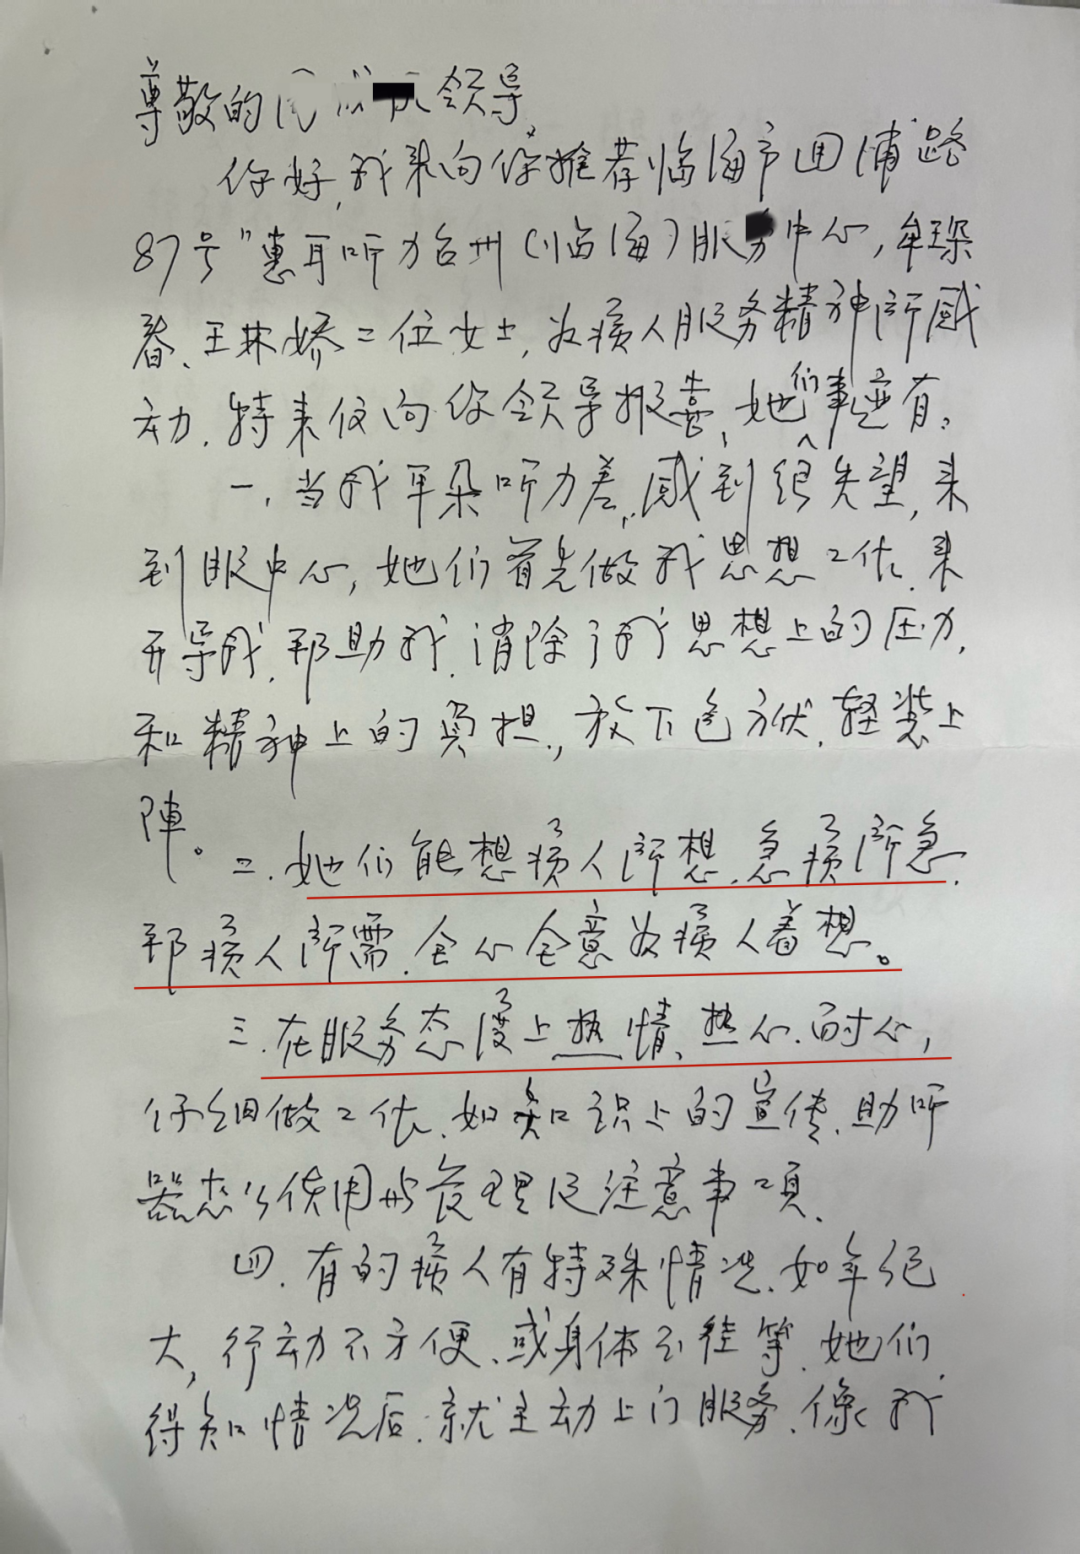 尊敬的 领导
你好，我来向你推荐临海市回浦路
87号"惠耳听力台州(临海)服务中心，牟琛
春、王林娇二位女士，为病人服务精神所感
动．特来信向你领导报喜，她们事迹有：
一．当我耳朵听力差，感到很失望，来
到服中心，她们首先做我思想工作．来
开导我．帮助我．消除了我思想上的压力，
和精神上的负担，放下包袱．轻装上
阵。
二．她们能想病人所想．急病所急．
帮病人所需．全心全意为病人着想。
三．在服务态度上热情、热心．耐心，
仔细做工作．如知识上的宣传．助听
器怎么使用与管理及注意事项．
四．有的病人有特殊情况．如年纪
大，行动不方便、或身体不佳等．她们
得知情况后．就主动上门服务．像我